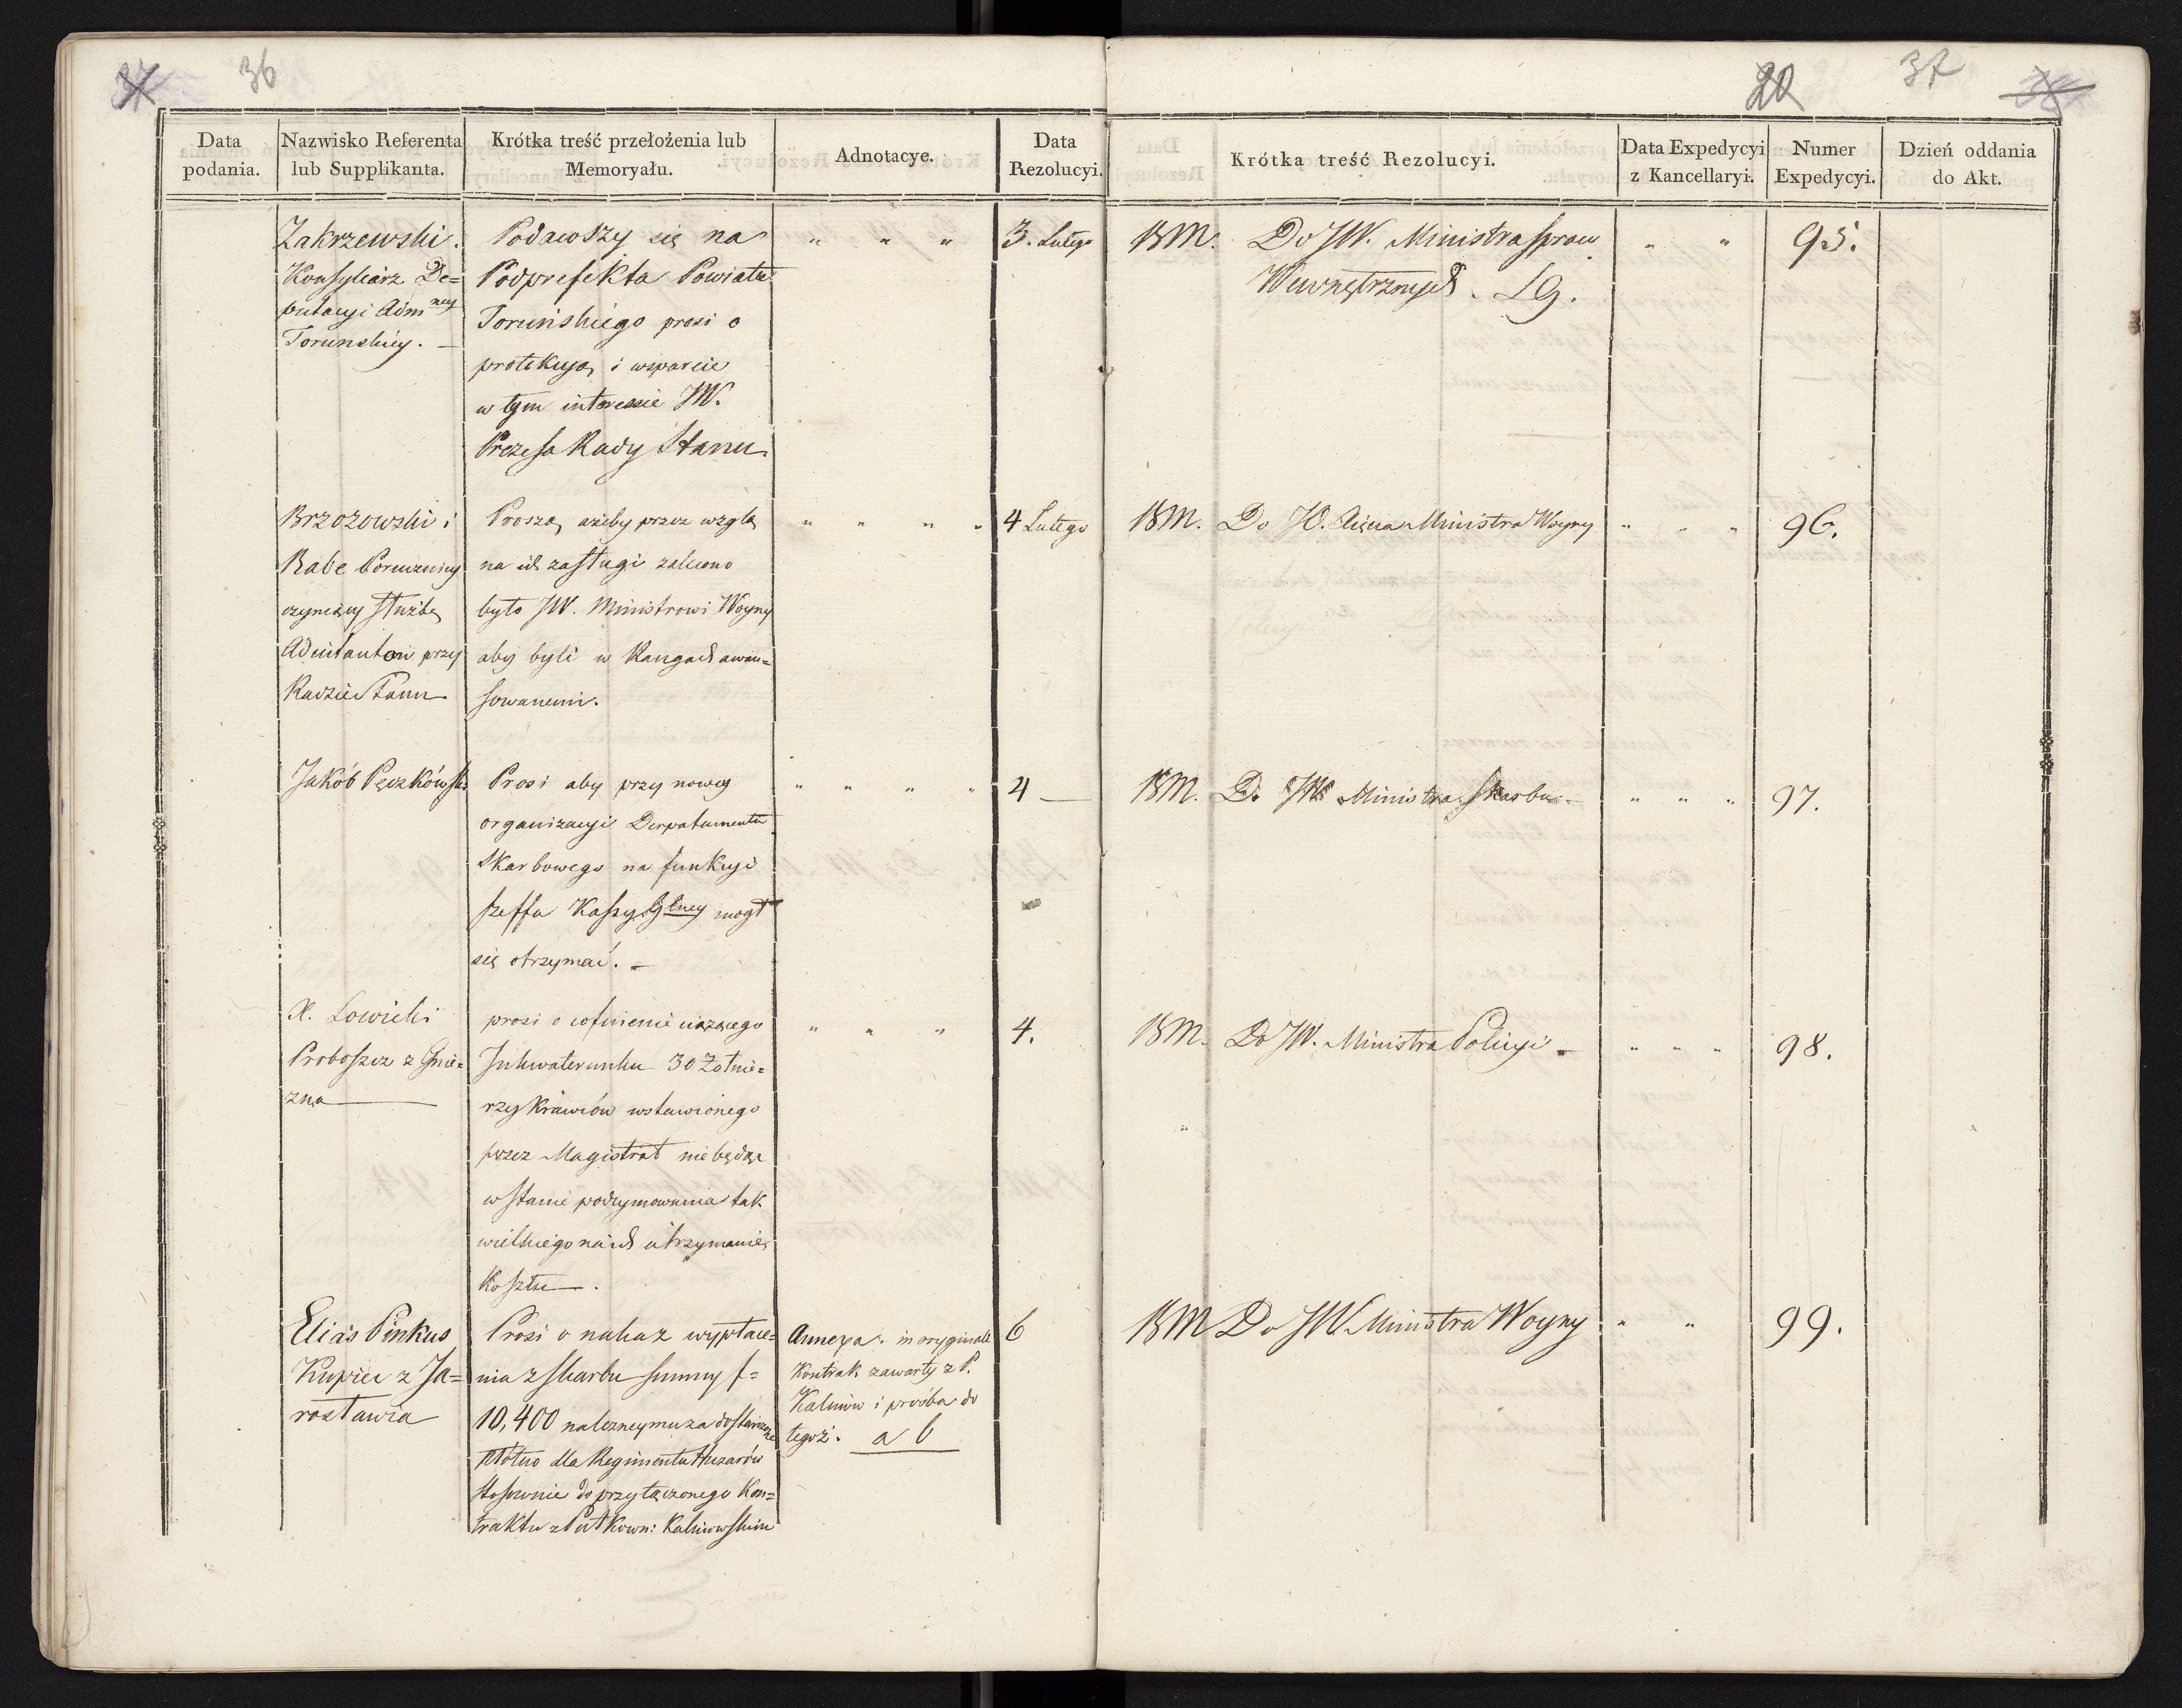 36
20
37
Data podania.
Nazwisko Referenta lub Supplikanta.
Krótka treść przełożenia lub Memoryału.
Adnotacye.
Data Rezolucyi.
Krótka treść Rezolucyi.
Data Expedycyi z Kancellaryi.
Numer Expedycyi.
Dzień oddania do Akt.
Zakrzewski.
Konsyliarz De=
putacyi Admney
Torunskiey. —
Podawszy się na
Podprefekta Powiatu
Toruńskiego prosi o
protekcyą i wsparcie
w tym interessie JW.
Prezesa Rady Stanu.
" " "
3. Lutego
BM. Do JW. Ministra Spraw
Wewnętrznych. LG.
" "
95.
Brzozowski i
Rabe Porucznicy
czyniący służbę
Adiutantów przy
Radzie Stanu
Proszą ażeby przez wzglą
na ich zasługi zalecono
było JW. Ministrowi Woyny
aby byli w Rangach awan=
sowanemi.
" " " "
4 Lutego
BM. Do JO. Xięcia Ministra Woyny
" " "
96.
Jakób Pęczkowski
Prosi aby przy nowey
organizacyi Derpatamentu
Skarbowego na funkcyi
Szeffa Kassy Głney mogł
się otrzymać. —
" " " "
4 —
BM. Do JW Ministra Skarbu —
" " "
97.
X. Łowicki
Proboszcz z Gnie=
zna —
prosi o cofnienie ciążącego
Inkwaterunku 30 Żołnie=
rzy Krawców wstawionego
przez Magistrat niebędąc
w stanie podeymowania tak
wielkiego na ich utrzymanie
Kosztu —.
" " "
4.
BM. Do JW. Ministra Policyi —
" " "
98.
Eliás Pinkus
Kupiec z Ja=
rosławia
Prosi o nakaz wypłace=
nia z skarbu summy f=
10,400 należney mu za dostarczone
płótno dla Regimentu Huzarów
stosownie do przyłączonego Kon=
traktu z Pułkown: Kalinowskim
Annexa. in oryginale
Kontrak zawarty z P.
Kalinow i prośba do
tegoż. a b
6
BM Do JW Ministra Woyny
" "
99.